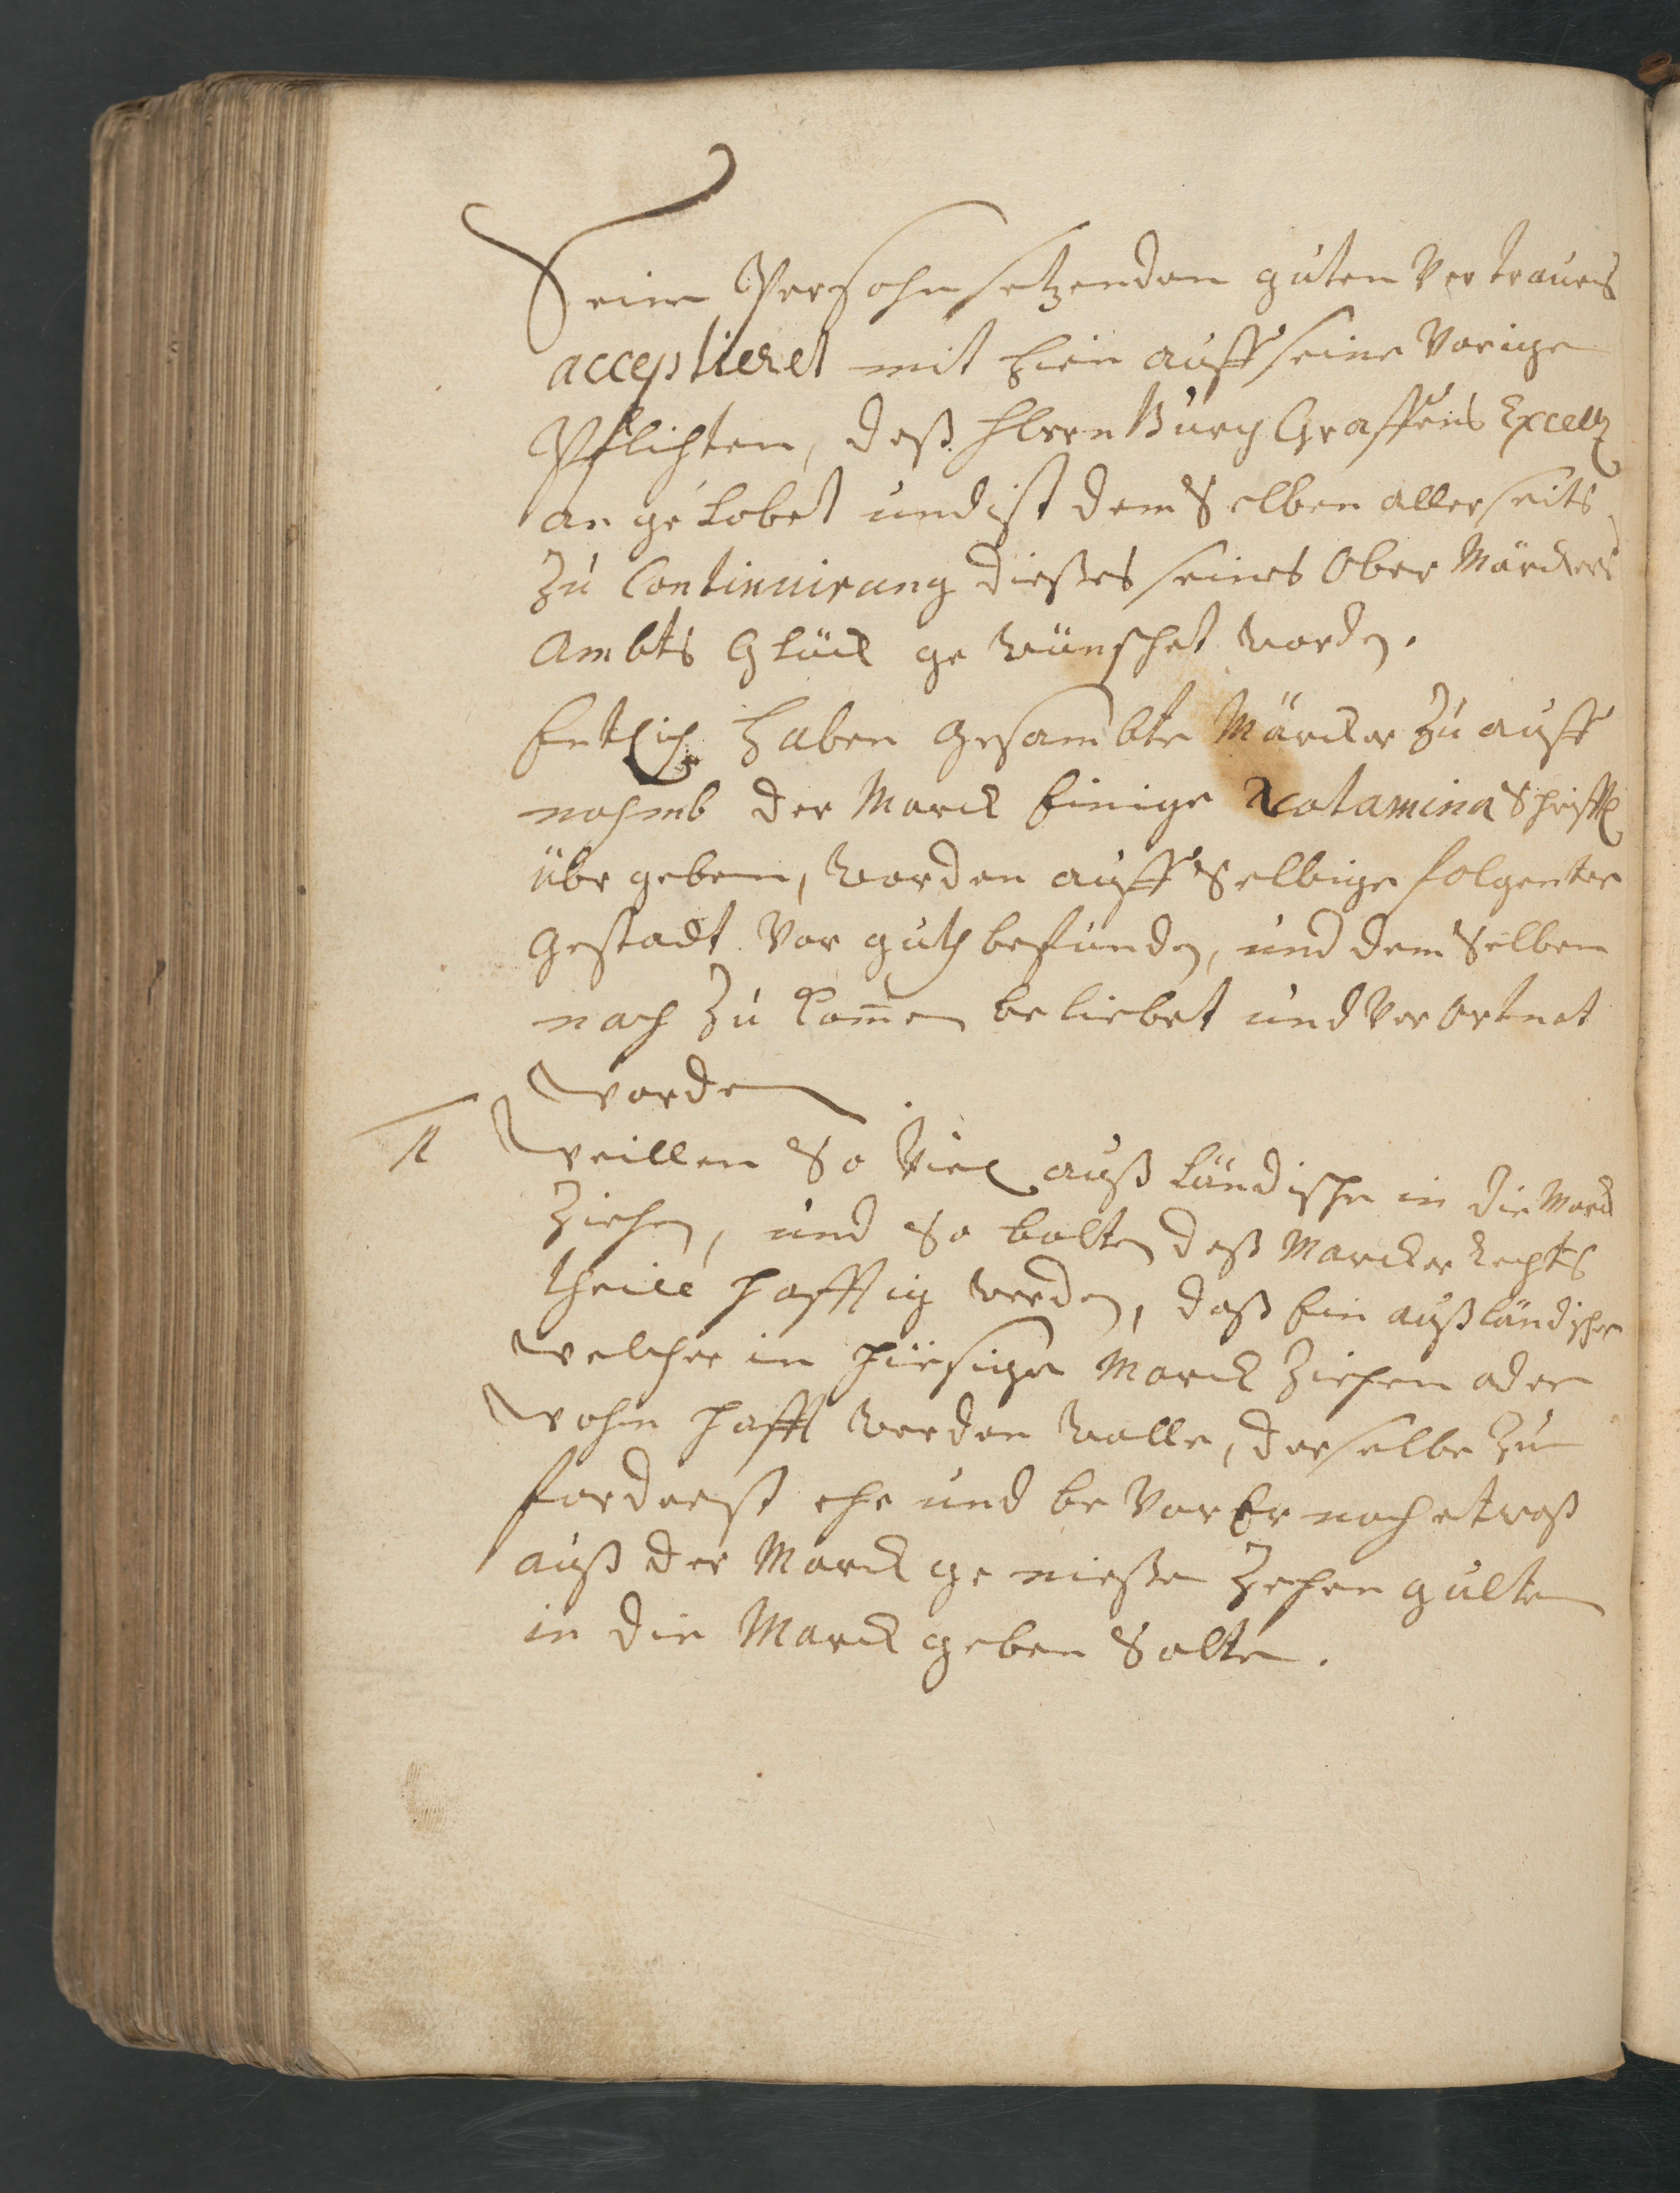 Seine Persohn setzenden guten Vertrauens
acceptieret mit hien auff seine Vorige
Pflichten, deß Herrn Burg Graffens Excell
an ge lobet und ist dem Selben allerseits
zu Continuirung dießes seines Ober Märckers
Ambts Glück ge wünschet worden.
Entlich haben gesambte Märcker zu auff
nahmb der Marck Einige gravamina Schrifftl
übr geben, worden auff Selbige folgenter
gestadt vor guth befunden, und dem Selben
nach zu kom̄en beliebet und Ver Ortnet
worden
1 Weillen So Viel auß ländische in die Marck
Ziehen, und So balten deß Marcker Rechts
theill hafftig werden, daß Ein außländischer
welcher in hiesige Marck ziehen oder
wohn hafft werden wolle, derselbe zu
forderst ehe und be Vor Er noch etwaß
auß der Marck ge nießen Zehen gulten
in die Marck geben Solte.